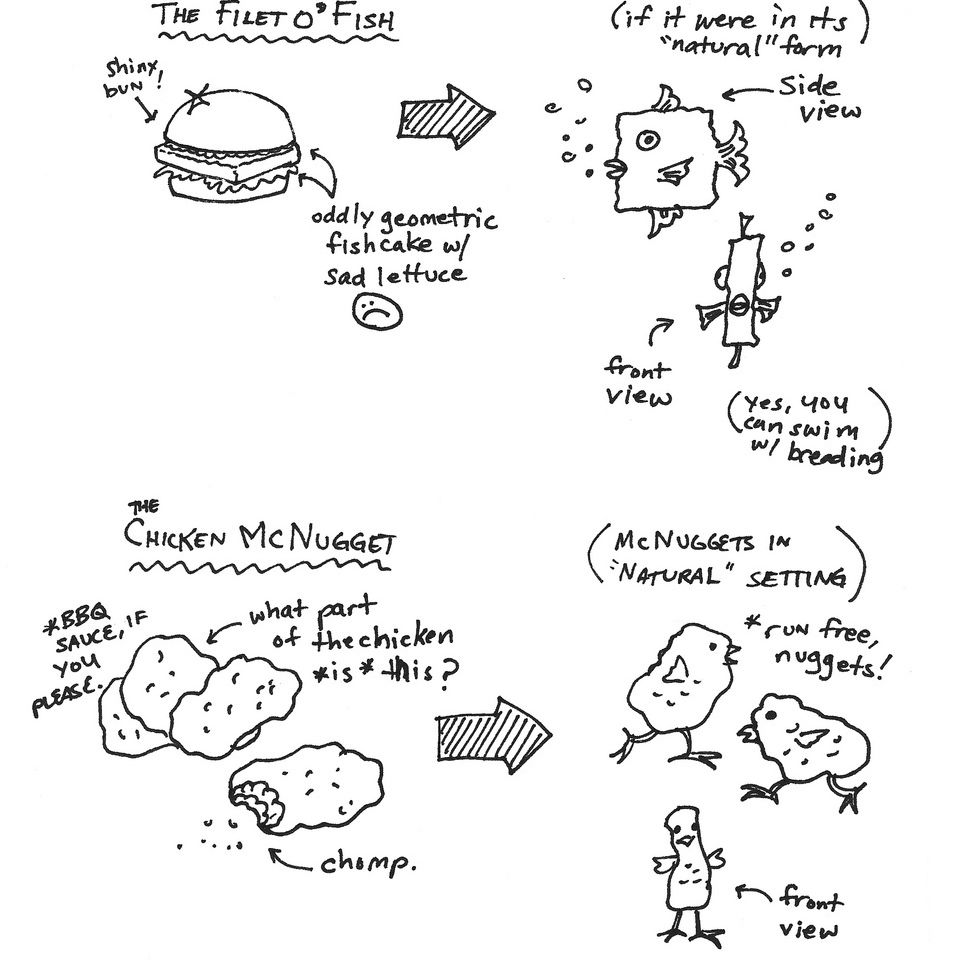 THE FILET O'FISH
(if it were in its
"natural" form)
shiny
bun!
Side
view
oddly geometric
fishcake w/
sad lettuce
front
view
(yes, you
can swim
w/ breading)
THE
CHICKEN MCNUGGET
(MCNUGGETS IN
"NATURAL" SETTING)
*BBQ
SAUCE, IF
YOU
PLEASE.
what part
of the chicken
*is* this?
*run free,
nuggets!
chomp.
front
view